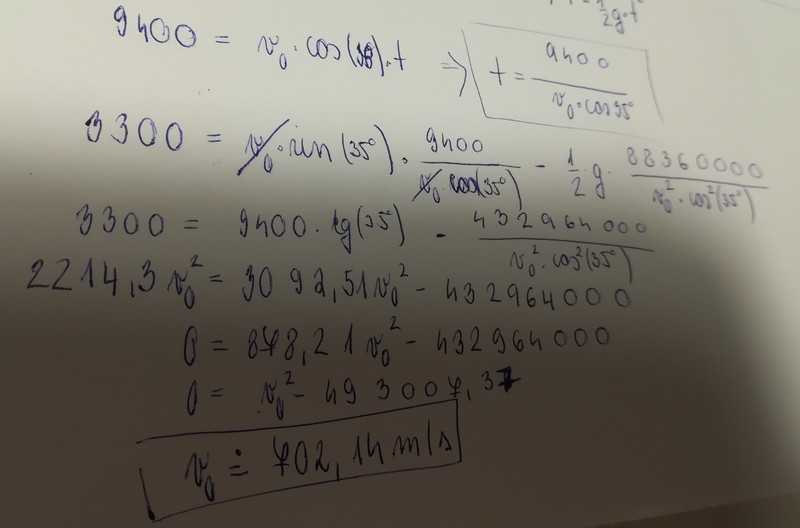 ½g·t²
9400 = v₀·cos(35)·t ⇒ t = 9400 / (v₀·cos35°)
3300 = v₀·sin(35°)·9400 / (v₀·cos(35°)) - ½·g·88360000 / (v₀²·cos²(35°))
3300 = 9400·tg(35°) - 432964000 / (v₀²·cos²(35°))
2214,3 v₀² = 3092,51 v₀² - 432964000
0 = 878,21 v₀² - 432964000
0 = v₀² - 493007,37
v₀ ≐ 702,14 m/s